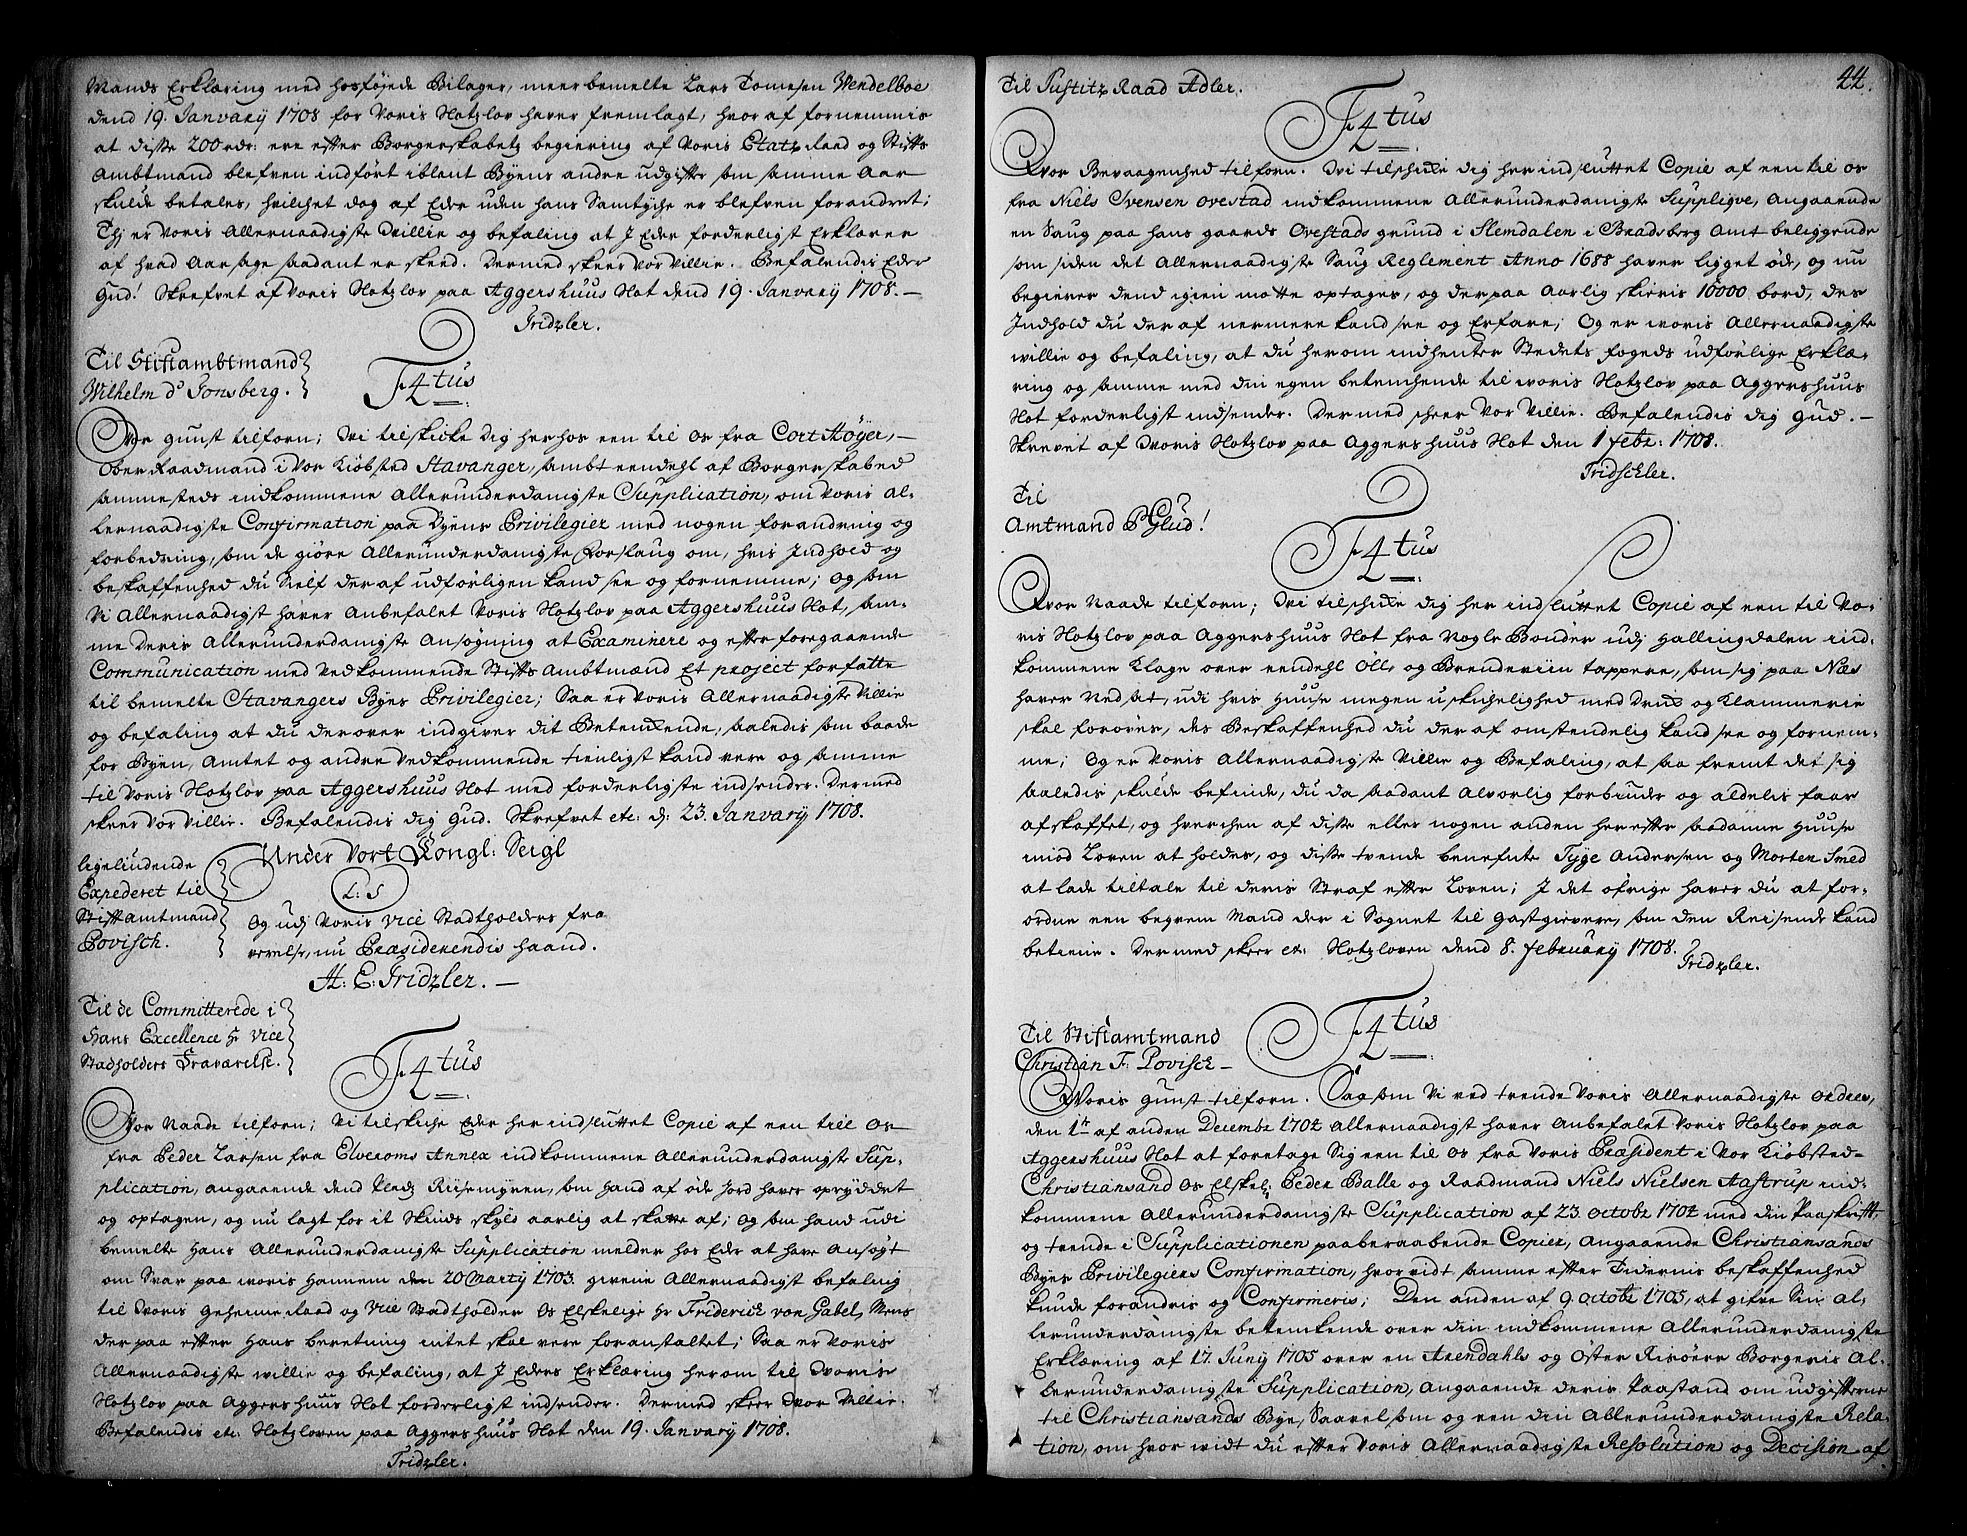 Mands Erklæring med hosføyede Bilager, meerbemelte Lars Tomesen Wendelboe
dend 19. Janvary 1708 for Voris Slotzlov haver fremlagt, hvor af fornemmis
at disse 200 rdr: ere efter Borgerskabetz begiering af Voris Etatz Raad og Stifts
Ambtmand blefven indført iblant Byens andre udgifter som samme Aar
skulde betales, hvilchet dog af Eder uden hans Samtyche er blefven forandret;
Thj er Voris Allernaadigste Villie og befaling at J Eder forderligst Erklærer
af hvad Aarsage saadant er skeed. Dermed skeer Vor Villie. Befalendis Eder
Gud! Skrefvet af Voris Slotzlov paa Aggershuus Slot dend 19. Janvary 1708. –
Tridzler.
Til Stiftambtmand
Wilhelm d' Tonsberg.
F4tus
Vor gunst tilforn; Vi tilskicke dig herhos een til os fra Cort Høyer, –
Ober Raadmand i Vor Kiøbsted Stavanger, sambt eendehl af Borgerskabed
sammesteds indkommene Allerunderdanigste Supplication, om Voris al-
lernaadigste Confirmation paa Byens Privilegier med nogen forandring og
forbedring, som de giøre Allerunderdanigste Forslaug om, hvis Indhold og
beskaffenhed du Sielf der af udførligen kand see og fornemme; og som
Vi Allernaadigst haver Anbefalet Voris Slotzlov paa Aggershuus Slot, sam-
me deris Allerunderdanigste Ansøgning at Examinere og efter foregaaende
Communication med Vedkommende Stifts Ambtmænd Et project forfatte
til bemelte Stavangers Byes Privilegier; Saa er Voris Allernaadigste Villie
og befaling at du der over indgiver dit Betenckende, saaledis som baade
for Byen, Amtet og andre Vedkommende tienligst kand vere og samme
til Voris Slotzlov paa Aggershuus Slot med forderligste indsender. Dermed
skeer Vor Villie. Befalendis dig Gud. Skrefvet etc: d: 23. Janvary 1708.
Under Vort Kongl: Seigl
L: S
ligeliudende
Expederet til
Stiftamtmand
Povisch.
Og udj Voris Vice Stadtholders fra
verelse, nu Præsiderendis haand.
H: E: Tridzler. –
Til de Committerede i
Hans Excellence Hr Vice
Stadholders Fraværelse.
F4tus
Vor Naade tilforn; Vi tilskiche Eder her indsluttet Copie af een till Os
fra Peder Larsen fra Elveroms Annex indkommene Allerunderdanigste Sup-
plication, angaaende dend Pladz Riisemyren, som hand af øde Jord haver opryddet
og optagen, og nu lagt for it Skinds skyld aarlig at skatte af; Og som hand udi
bemelte hans Allerunderdanigste Supplication melder hos Eder at have Ansøgt
om Svar paa voris hannem den 20 Marty 1703. givene Allernaadigst befaling
til Voris geheime Raad og Vice Stadtholder Os Elskelige hr Friderich von Gabel, Mens
der paa efter hans beretning intet skal vere foranstaltet; Saa er Voris
Allernaadigste willie og befaling, at J Eders Erklæring herom til Voris
Slotzlov paa Aggershuus Slot forderligst indsender. Dermed skeer Vor Villie.
Befalendis etc: Slotzloven paa Aggershuus Slot den 19. Janvary 1708.
Tridzler.
44.
Til Justitz Raad Adler.
F4tus
Vor Bevaagenhed tilforn. Vi tilschicke dig her indsluttet Copie af een til os
fra Niels Svensen ovestad indkommene Allerunderdanigste Suppliqve, Angaaende
en Saug paa hans gaards Ovestads grund i Slemdalen i Bradsberg Amt beliggende
som siden det Allernaadigste Saug Reglement Anno 1688 haver ligget øde, og nu
begierer dend igien motte optages, og der paa Aarlig skieris 10000 bord, des
Indhold du der af nermere kand see og Erfare; Og er woris Allernaadigste
willie og befaling, at du her om indhenter Stedets fogeds udførlige Erklæ-
ring og samme med din egen betenchende til woris Slotzlov paa Aggershuus
Slot forderligst indsender. Dermed scheer Vor Villie. Befalendis dig Gud. –
Skrevet af Voris Slotzlov paa Aggershuus Slot den 1 febr: 1708.
Tridschler.
Til
Amtmand P Glud!
F4tus
Vor Naade tilforn; Vi tilschicke dig her indsluttet Copie af een til Vo-
ris Slotzlov paa Aggershuus Slot fra Nogle Bønder udj Hallingdalen ind-
kommene Klage over eendehl Ølls og Brendeviin tappere, som sig paa Næs
haver Nedsat, udi hvis Huuse megen uskichelighed med Druck og Klammerie
skal forøves, des Beskaffenhed du der af omstendelig kand see og fornem-
me; Og er Voris Allernaadigste Villie og Befaling, at saa fremt det sig
saaledis skulde befinde, du da saadant Alvorlig forbiuder og aldelis faar
afskaffet, og hverchen af disse eller nogen anden her efter saadanne Huuse
mod Loven at holdes, og disse tvende benefnte Tyge Andersen og Morten Smed
at lade tiltale til deris Straf efter Loven; J det øfrige haver du at for-
ordne een beqvem Mand der i Sognet til Gastgievere, som den Reisende kand
betiene. Dermed skeer etc: Slotzloven dend 8. February 1708.
Tridzler.
Til Stiftamtmand
Christian F: Povisch –
F4tus
Voris gunst tilforn. Saasom Vi ved tvende Voris Allernaadigste Ordres,
den 1te af anden Decembr 1704 Allernaadigst haver Anbefalet Voris Slotzlov paa
Aggershuus Slot at foretage Sig een til os fra Voris Præsident i Vor Kiøbsted
Christiansand Os Elskel: Peder Balle og Raadmand Niels Nielsen Aastrup ind-
kommene Allerunderdanigste Supplication af 23. octobr 1704 med din Paaskrift,
og tvende i Supplicationen paaberaabende Copier, angaaende Christiansands
Byes Privilegiers Confirmation, hvor vidt samme efter Tidernis beskaffenhed
kunde forandris og Confirmeris; Den anden af 9 octobr 1705, at gifve Sin Al-
lerunderdanigste betenkende over din indkommene Allerunderdanigste
Erklæring af 17. Juny 1705 over en Arendahls og Oster Risøers Borgeris Al-
lerunderdanigste Supplication, angaaende deris Paastand om udgifterne
til Christiansands Bye, Saavelsom og een din Allerunderdanigste Rela-
tion, om hvor widt du efter Voris Allernaadigste Resolution og Decision af